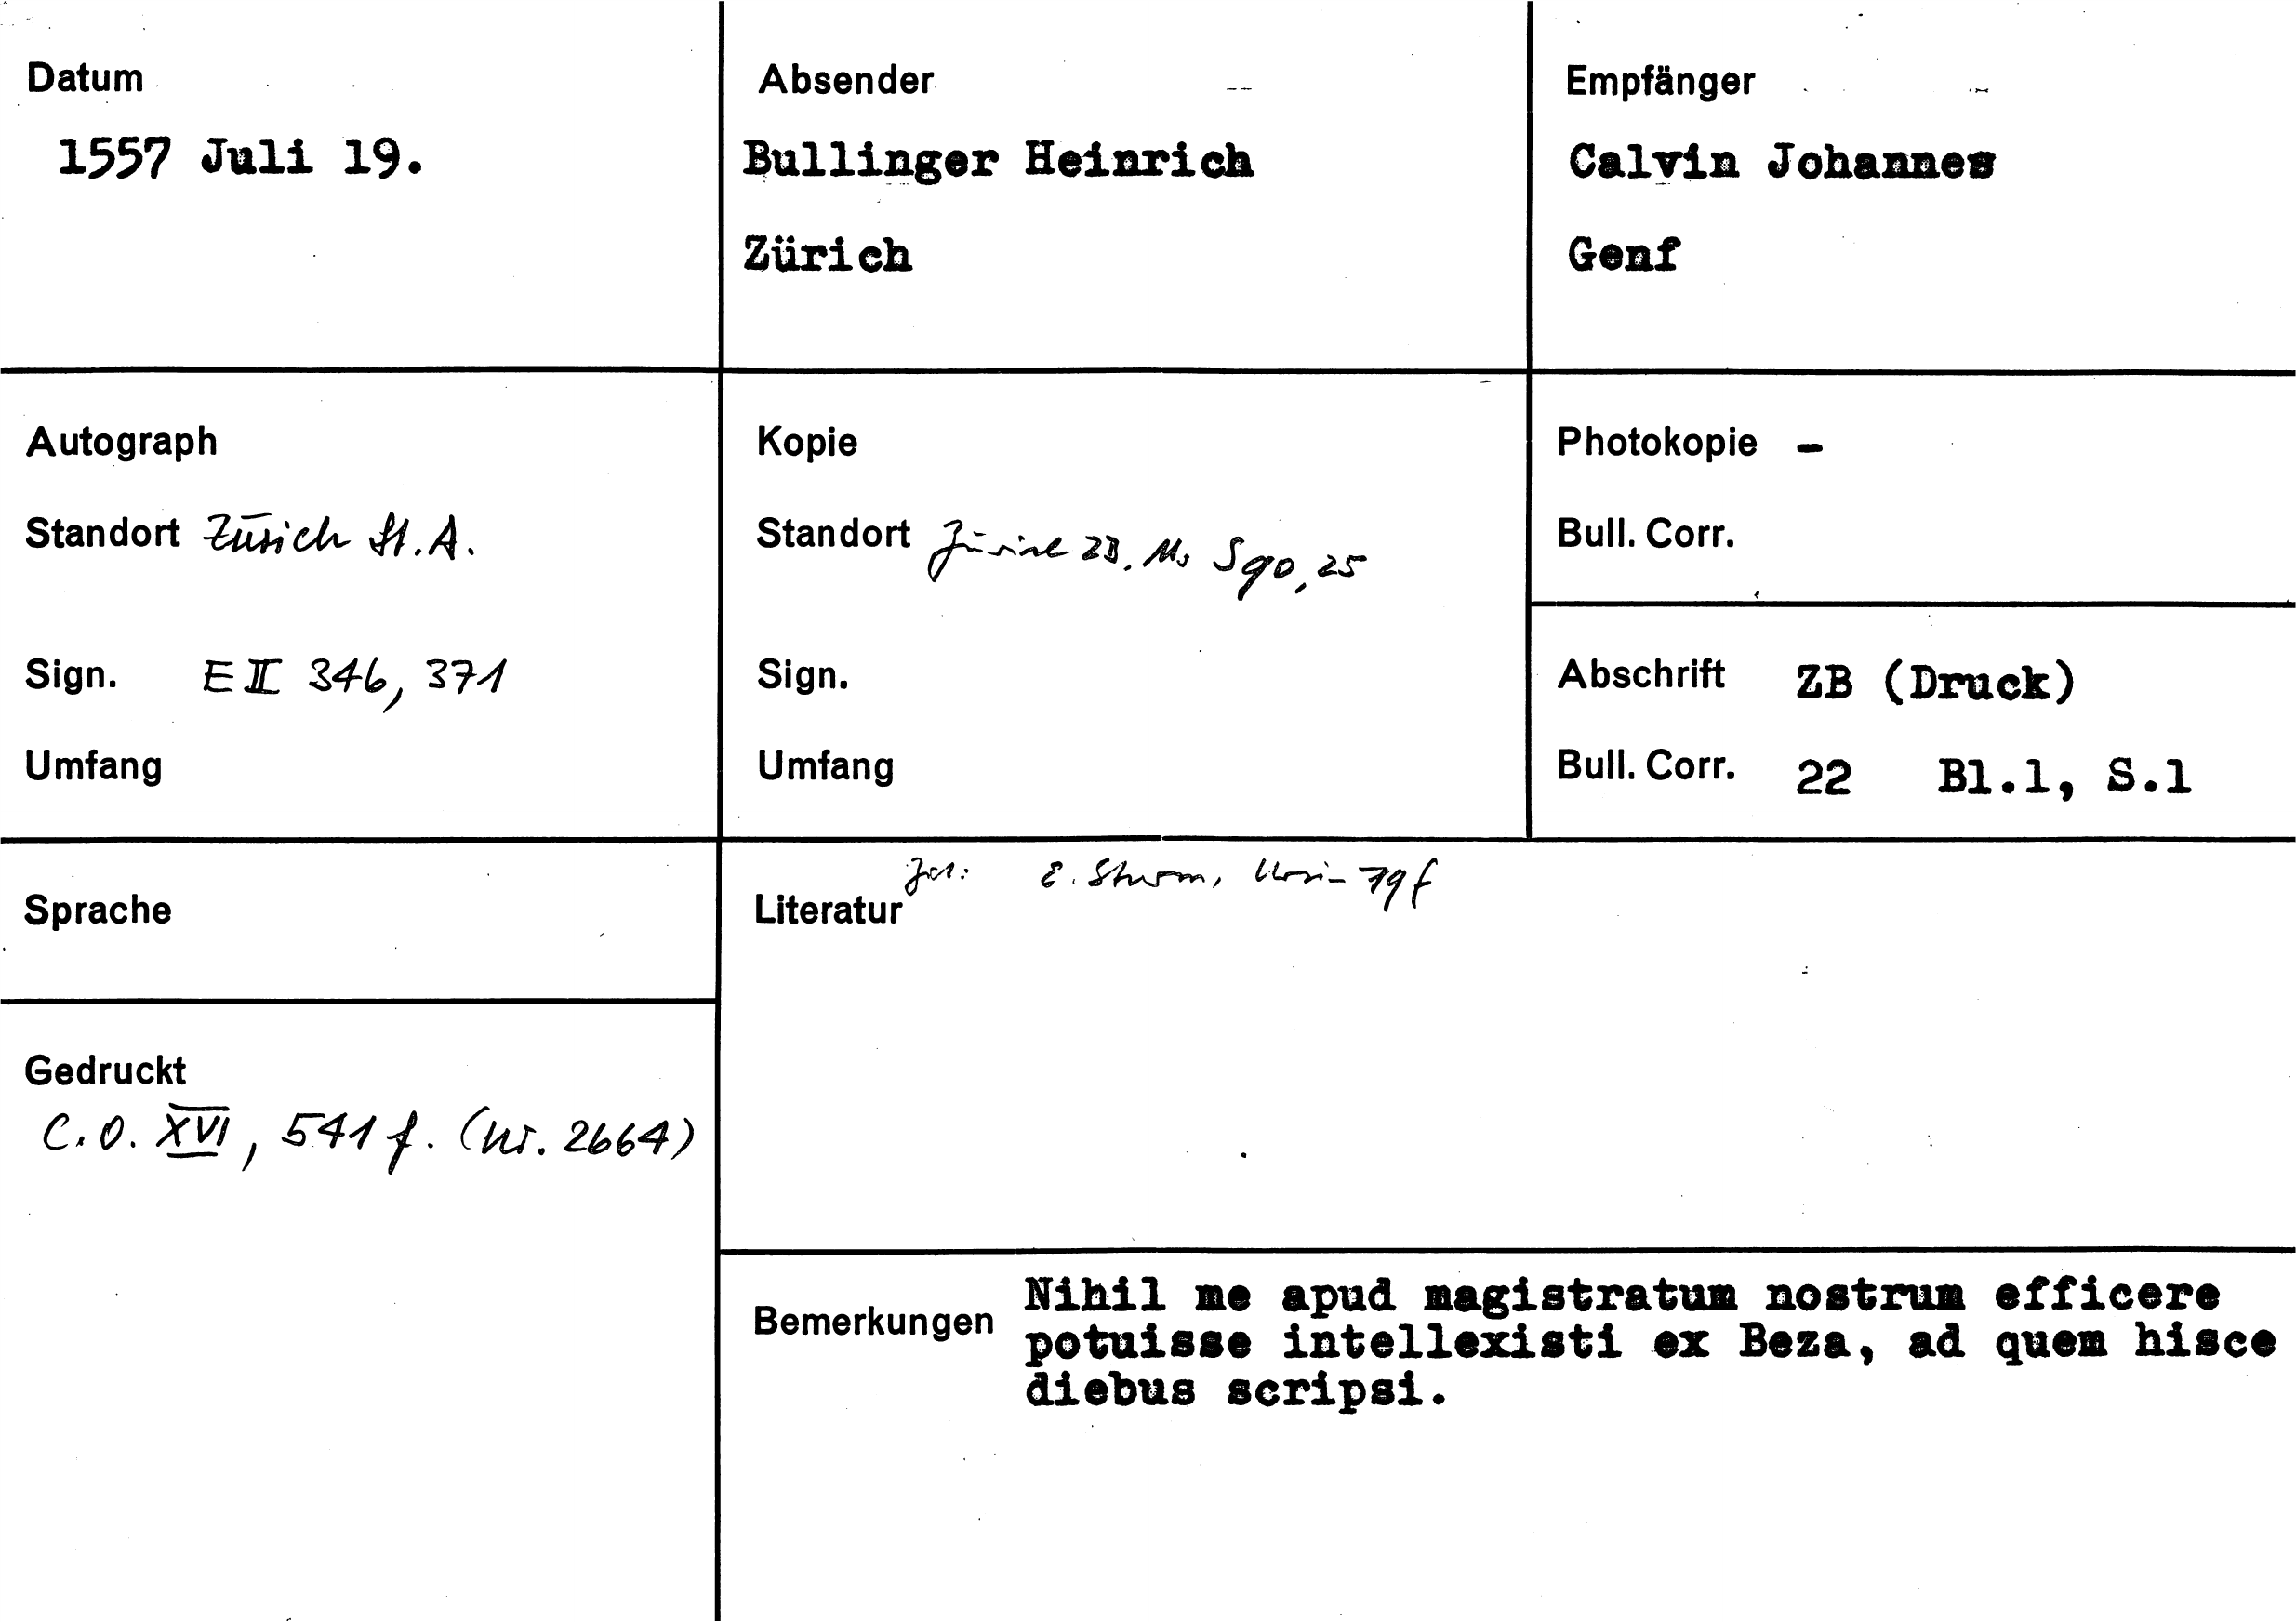 Datum
1557 Juli 19.
Absender
Bullinger Heinrich
Zürich
Empfänger
Calvin Johannes
Genf
Autograph
Standort Zürich St.A.
Sign. E II 346, 371
Umfang
Kopie
Standort Zürich ZB, Ms S 90, 25
Sign.
Umfang
Photokopie -
Bull. Corr.
Abschrift ZB (Druck)
Bull. Corr. 22 Bl.1, S.1
Sprache
Gedruckt
C.O. XVI, 541 f. (Nr. 2664)
Literatur E. Sturm, 79 f
Bemerkungen Nihil me apud magistratum nostrum efficere
potuisse intellexisti ex Beza, ad quem hisce
diebus scripsi.